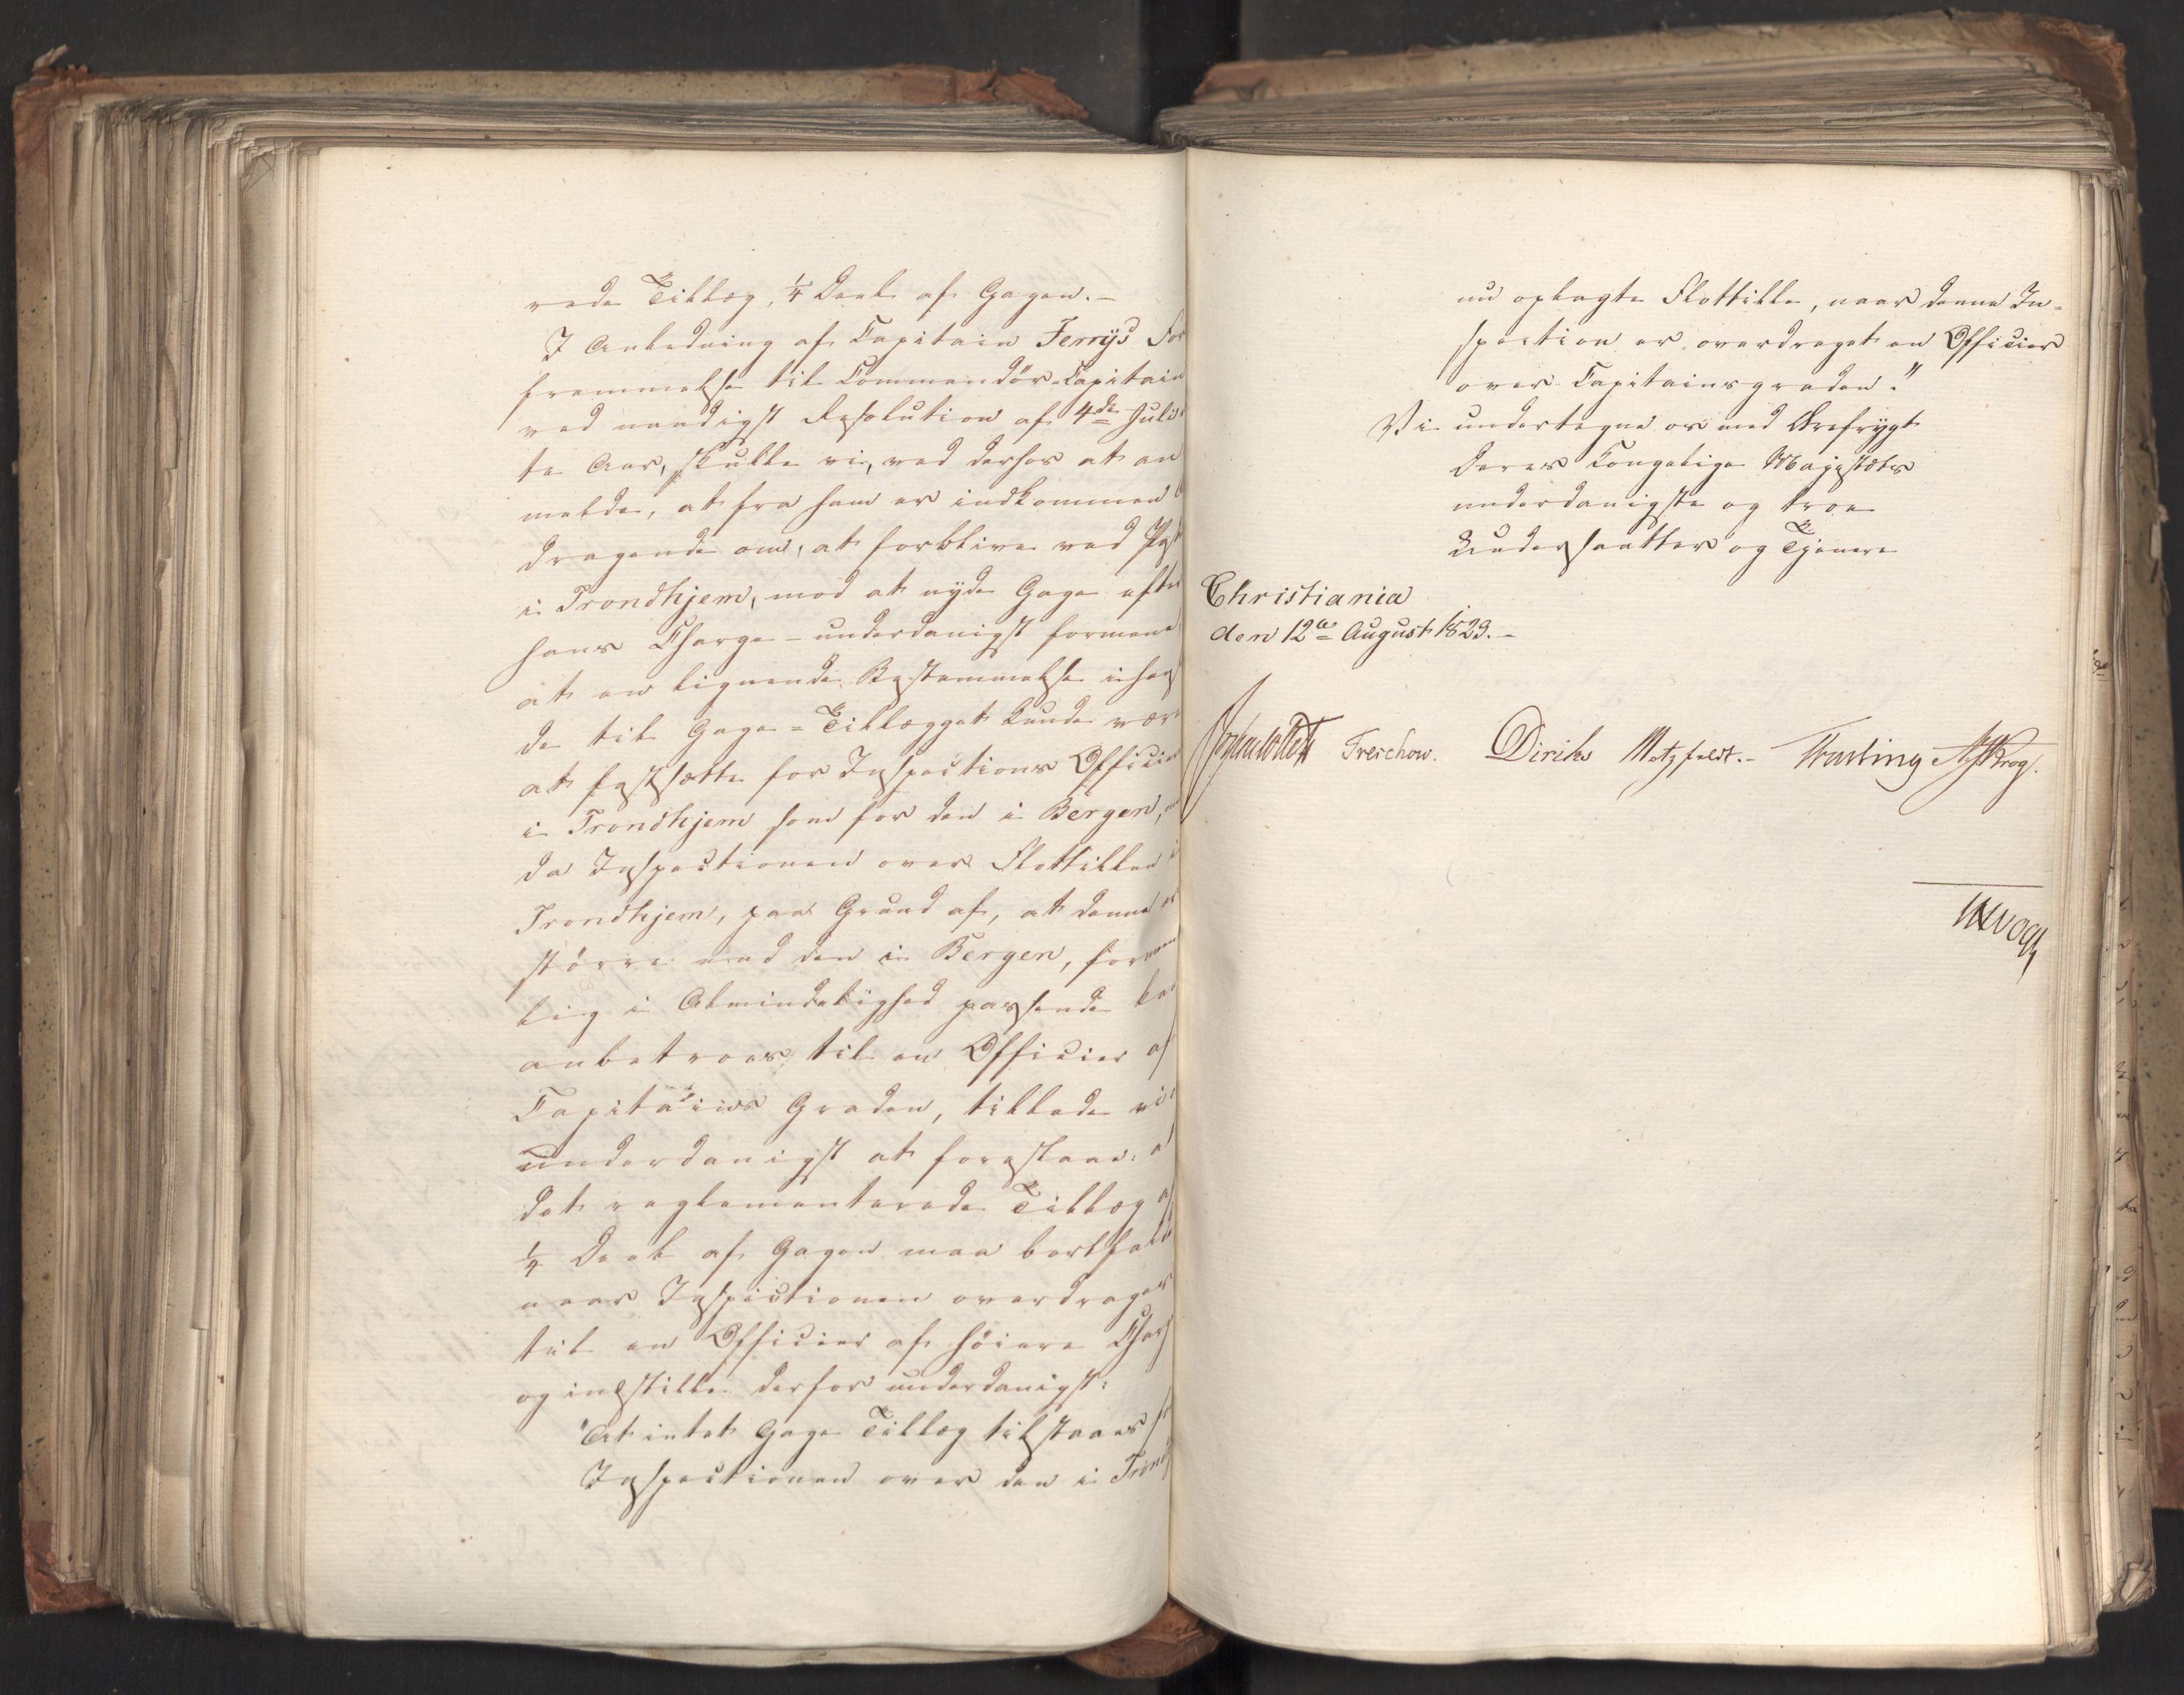 rede Tillæg, ¼ Deel af Gagen.-
I Anledning af Capitain Ferrys For
fremmelse til Commandör-Capitain
ved naadigst Resolution af 4de Juli
te Aar, skulle vi, ved derhos at an
melde, at fra ham er indkommen
dragende om, at forblive ved
i Trondhjem, mod at nyde Gage efter
hans Charge - underdanigst formene
at en lignende Bestemmelse i hens
de til Gage-Tillægget kunde være
at fastsætte for Inspections Officier
i Trondhjem som for den i Bergen,
da Inspectionen over Flottillen i
Trondhjem, paa Grund af, at denne er
större end den i Bergen, formeen
lig i Almindelighed passende
anbetroes til en Officier af
Capitains Graden, tillade vi
underdanigst at foreslaae: at
det reglementerede Tillæg af
¼ Deel af Gagen maa bortfalde
naar Inspectionen overdrages
til en Officier af höiere Charg
og indstille derfor underdanigst:
"At intet Gage Tillæg tilstaaes for
Inspectionen over den i Trondh
nu oplagte Flottille, naar denne In-
spection er overdraget en Officier
over Capitainsgraden."
Vi undertegne os med Ærefrygt
Deres Kongelige Majestæts
underdanigste og troe
Undersaatter og Tjenere
Christiania
den 12te August 1823.-
Treschow. Diriks Motzfeldt.- Fasting Krog.
Vogt